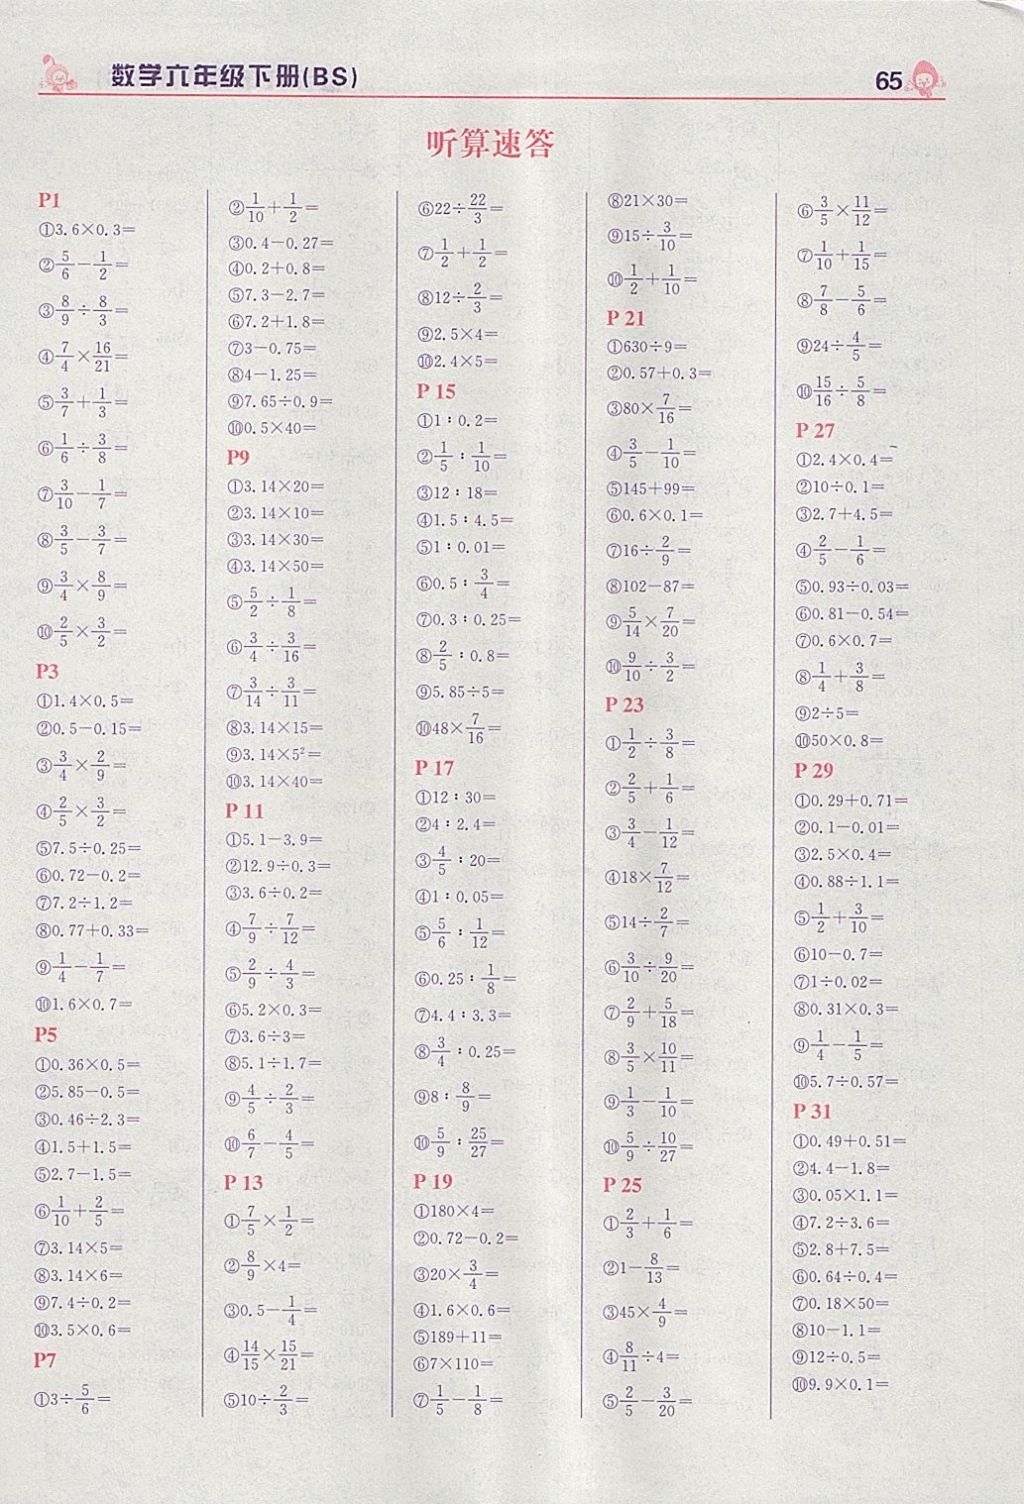 数学六年级下册(BS)
65
听算速答
P1
①3.6×0.3=
②5/6-1/2=
③8/9÷8/3=
④7/4×16/21=
⑤3/7+1/3=
⑥1/6÷3/8=
⑦3/10-1/7=
⑧3/5-3/7=
⑨3/4×8/9=
⑩2/5×3/2=
P3
①1.4×0.5=
②0.5-0.15=
③3/4×2/9=
④2/5×3/2=
⑤7.5÷0.25=
⑥0.72-0.2=
⑦7.2÷1.2=
⑧0.77+0.33=
⑨1/4-1/7=
⑩1.6×0.7=
P5
①0.36×0.5=
②5.85-0.5=
③0.46÷2.3=
④1.5+1.5=
⑤2.7-1.5=
⑥1/10+2/5=
⑦3.14×5=
⑧3.14×6=
⑨7.4÷0.2=
⑩3.5×0.6=
P7
①3÷5/6=
②1/10+1/2=
③0.4-0.27=
④0.2+0.8=
⑤7.3-2.7=
⑥7.2+1.8=
⑦3-0.75=
⑧4-1.25=
⑨7.65÷0.9=
⑩0.5×40=
P9
①3.14×20=
②3.14×10=
③3.14×30=
④3.14×50=
⑤5/2÷1/8=
⑥3/4÷3/16=
⑦3/14÷3/11=
⑧3.14×15=
⑨3.14×5²=
⑩3.14×40=
P 11
①5.1-3.9=
②12.9÷0.3=
③3.6÷0.2=
④7/9÷7/12=
⑤2/9÷4/3=
⑥5.2×0.3=
⑦3.6÷3=
⑧5.1÷1.7=
⑨4/5÷2/3=
⑩6/7-4/5=
P 13
①7/5×1/2=
②8/9×4=
③0.5-1/4=
④14/15×15/21=
⑤10÷2/3=
⑥22÷22/3=
⑦1/2+1/2=
⑧12÷2/3=
⑨2.5×4=
⑩2.4×5=
P 15
①1∶0.2=
②1/5∶1/10=
③12∶18=
④1.5∶4.5=
⑤1∶0.01=
⑥0.5∶3/4=
⑦0.3∶0.25=
⑧2/5∶0.8=
⑨5.85÷5=
⑩48×7/16=
P 17
①12∶30=
②4∶2.4=
③4/5∶20=
④1∶0.05=
⑤5/6∶1/12=
⑥0.25∶1/8=
⑦4.4∶3.3=
⑧3/4∶0.25=
⑨8∶8/9=
⑩5/9∶25/27=
P 19
①180×4=
②0.72-0.2=
③20×3/4=
④1.6×0.6=
⑤189+11=
⑥7×110=
⑦1/5-1/8=
⑧21×30=
⑨15÷3/10=
⑩1/2+1/10=
P 21
①630÷9=
②0.57+0.3=
③80×7/16=
④3/5-1/10=
⑤145+99=
⑥0.6×0.1=
⑦16÷2/9=
⑧102-87=
⑨5/14×7/20=
⑩9/10÷3/2=
P 23
①1/2÷3/8=
②2/5+1/6=
③3/4-1/12=
④18×7/12=
⑤14÷2/7=
⑥3/10÷9/20=
⑦2/9+5/18=
⑧3/5×10/11=
⑨1/3-1/10=
⑩5/9÷10/27=
P 25
①2/3+1/6=
②1-8/13=
③45×4/9=
④8/11÷4=
⑤2/5-3/20=
⑥3/5×11/12=
⑦1/10+1/15=
⑧7/8-5/6=
⑨24÷4/5=
⑩15/16÷5/8=
P 27
①2.4×0.4=
②10÷0.1=
③2.7+4.5=
④2/5-1/6=
⑤0.93÷0.03=
⑥0.81-0.54=
⑦0.6×0.7=
⑧1/4+3/8=
⑨2÷5=
⑩50×0.8=
P 29
①0.29+0.71=
②0.1-0.01=
③2.5×0.4=
④0.88÷1.1=
⑤1/2+3/10=
⑥10-0.7=
⑦1÷0.02=
⑧0.31×0.3=
⑨1/4-1/5=
⑩5.7÷0.57=
P 31
①0.49+0.51=
②4.4-1.8=
③0.05×1.1=
④7.2÷3.6=
⑤2.8+7.5=
⑥0.64÷0.4=
⑦0.18×50=
⑧10-1.1=
⑨12÷0.5=
⑩9.9×0.1=